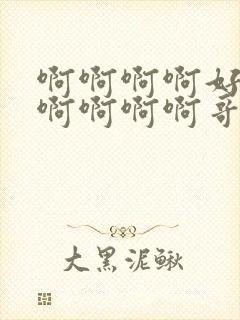 啊啊啊啊好
啊啊啊啊哥
大黑泥鳅